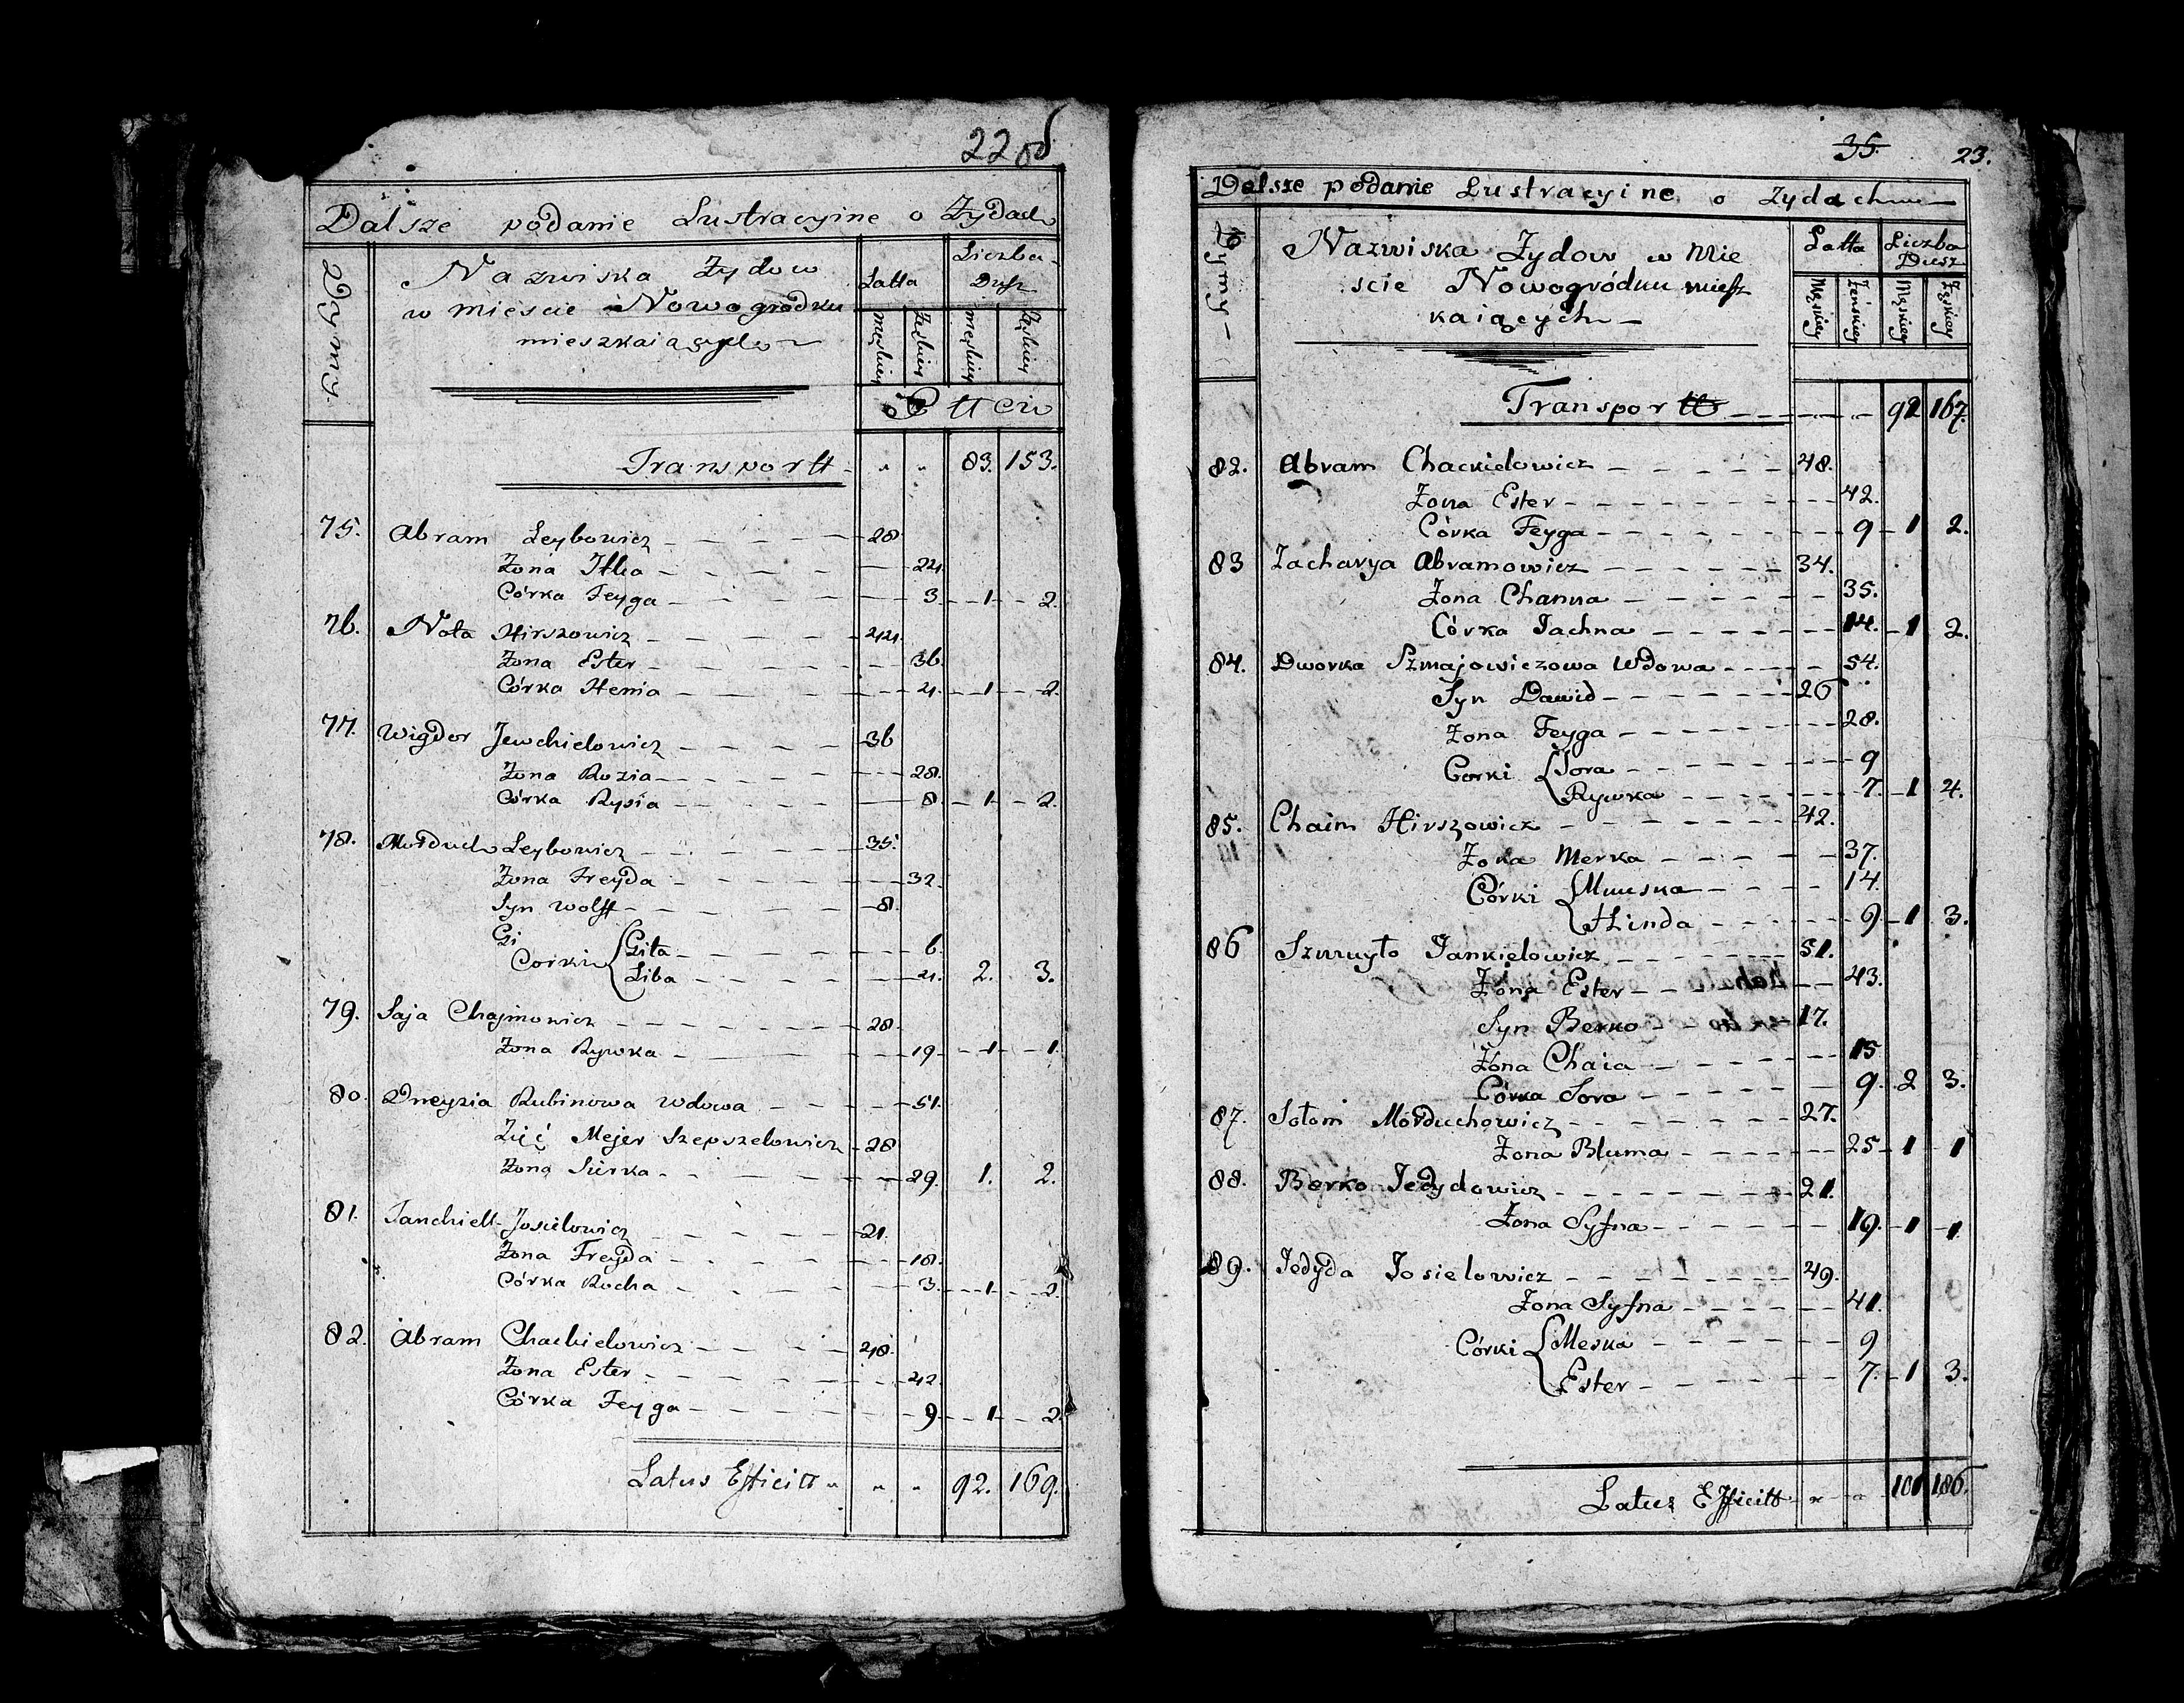 22 об
Dalsze podanie Lustracyine o Żydach
Dymy.
Nazwiska Żydow
w miescie Nowogrodku
mieszkaiących
Latta
Liczba
Dusz
męskiey
Żeńskiey
męskiey
Żeńskiey
Płłci
Transportt " " 83. 153.
75. Abram Leybowicz 28
Żona Itka 24
Córka Feyga 3. 1 2.
76. Nota Hirszowicz 44.
Żona Ester 36.
Córka Henia 4. 1 2.
77. Wigdor Jewchielowicz 36
Żona Rozia 28.
Córka Rysia 8. 1 2.
78. Morduch Leybowicz 35.
Żona Freyda 32.
Syn Wolff 8.
Gi
Corki Gita 6.
Liba 4. 2. 3.
79. Saja Chajmowicz 28.
Żona Rywka 19 1 1.
80. Dneyzia Rubinowa Wdowa 51.
Zięć Mejer Szepszelowicz 28
Żona Sierka 29. 1. 2.
81. Janchiell Josielowicz 21.
Żona Freyda 18.
Córka Rocha 3. 1 2
82. Abram Chackielowicz 48.
Żona Ester 42.
Córka Feyga 9 1 2.
Latus Efficitt " " " 92. 169.
35. 23.
Dalsze podanie Lustracyine o Zydach
Dymy
Nazwiska Żydow w Mie
scie Nowogródku miesz
kaiących
Latta
Liczba
Dusz
Męskiey
Żeńskiey
Męskiey
Żeńskiey
Transportt 92 167.
82. Abram Chackielowicz 48.
Żona Ester 42.
Córka Feyga 9 1 2.
83 Zacharya Abramowicz 34.
Żona Channa 35.
Córka Jachna 14. 1 2.
84. Dworka Szmajowiczowa Wdowa 54.
Syn Dawid 26
Żona Feyga 28.
Corki Sora 9
Rywka 7. 1 4.
85. Chaim Hirszowicz 42.
Żona Merka 37.
Córki Mnuska 14.
Hinda 9 1 3.
86 Szmuyło Jankielowicz 51.
Żona Ester 43.
Syn Berko 17.
Żona Chaia 15
Córka Sora 9. 2 3.
87. Sołom Morduchowicz 27.
Żona Bluma 25 1 1
88. Berko Jedydowicz 21.
Żona Syfna 19. 1 1
89. Jedyda Josielowicz 49.
Żona Syfna 41.
Córki Meska 9
Ester 7. 1 3.
Latus Efficitt " " 101 186.